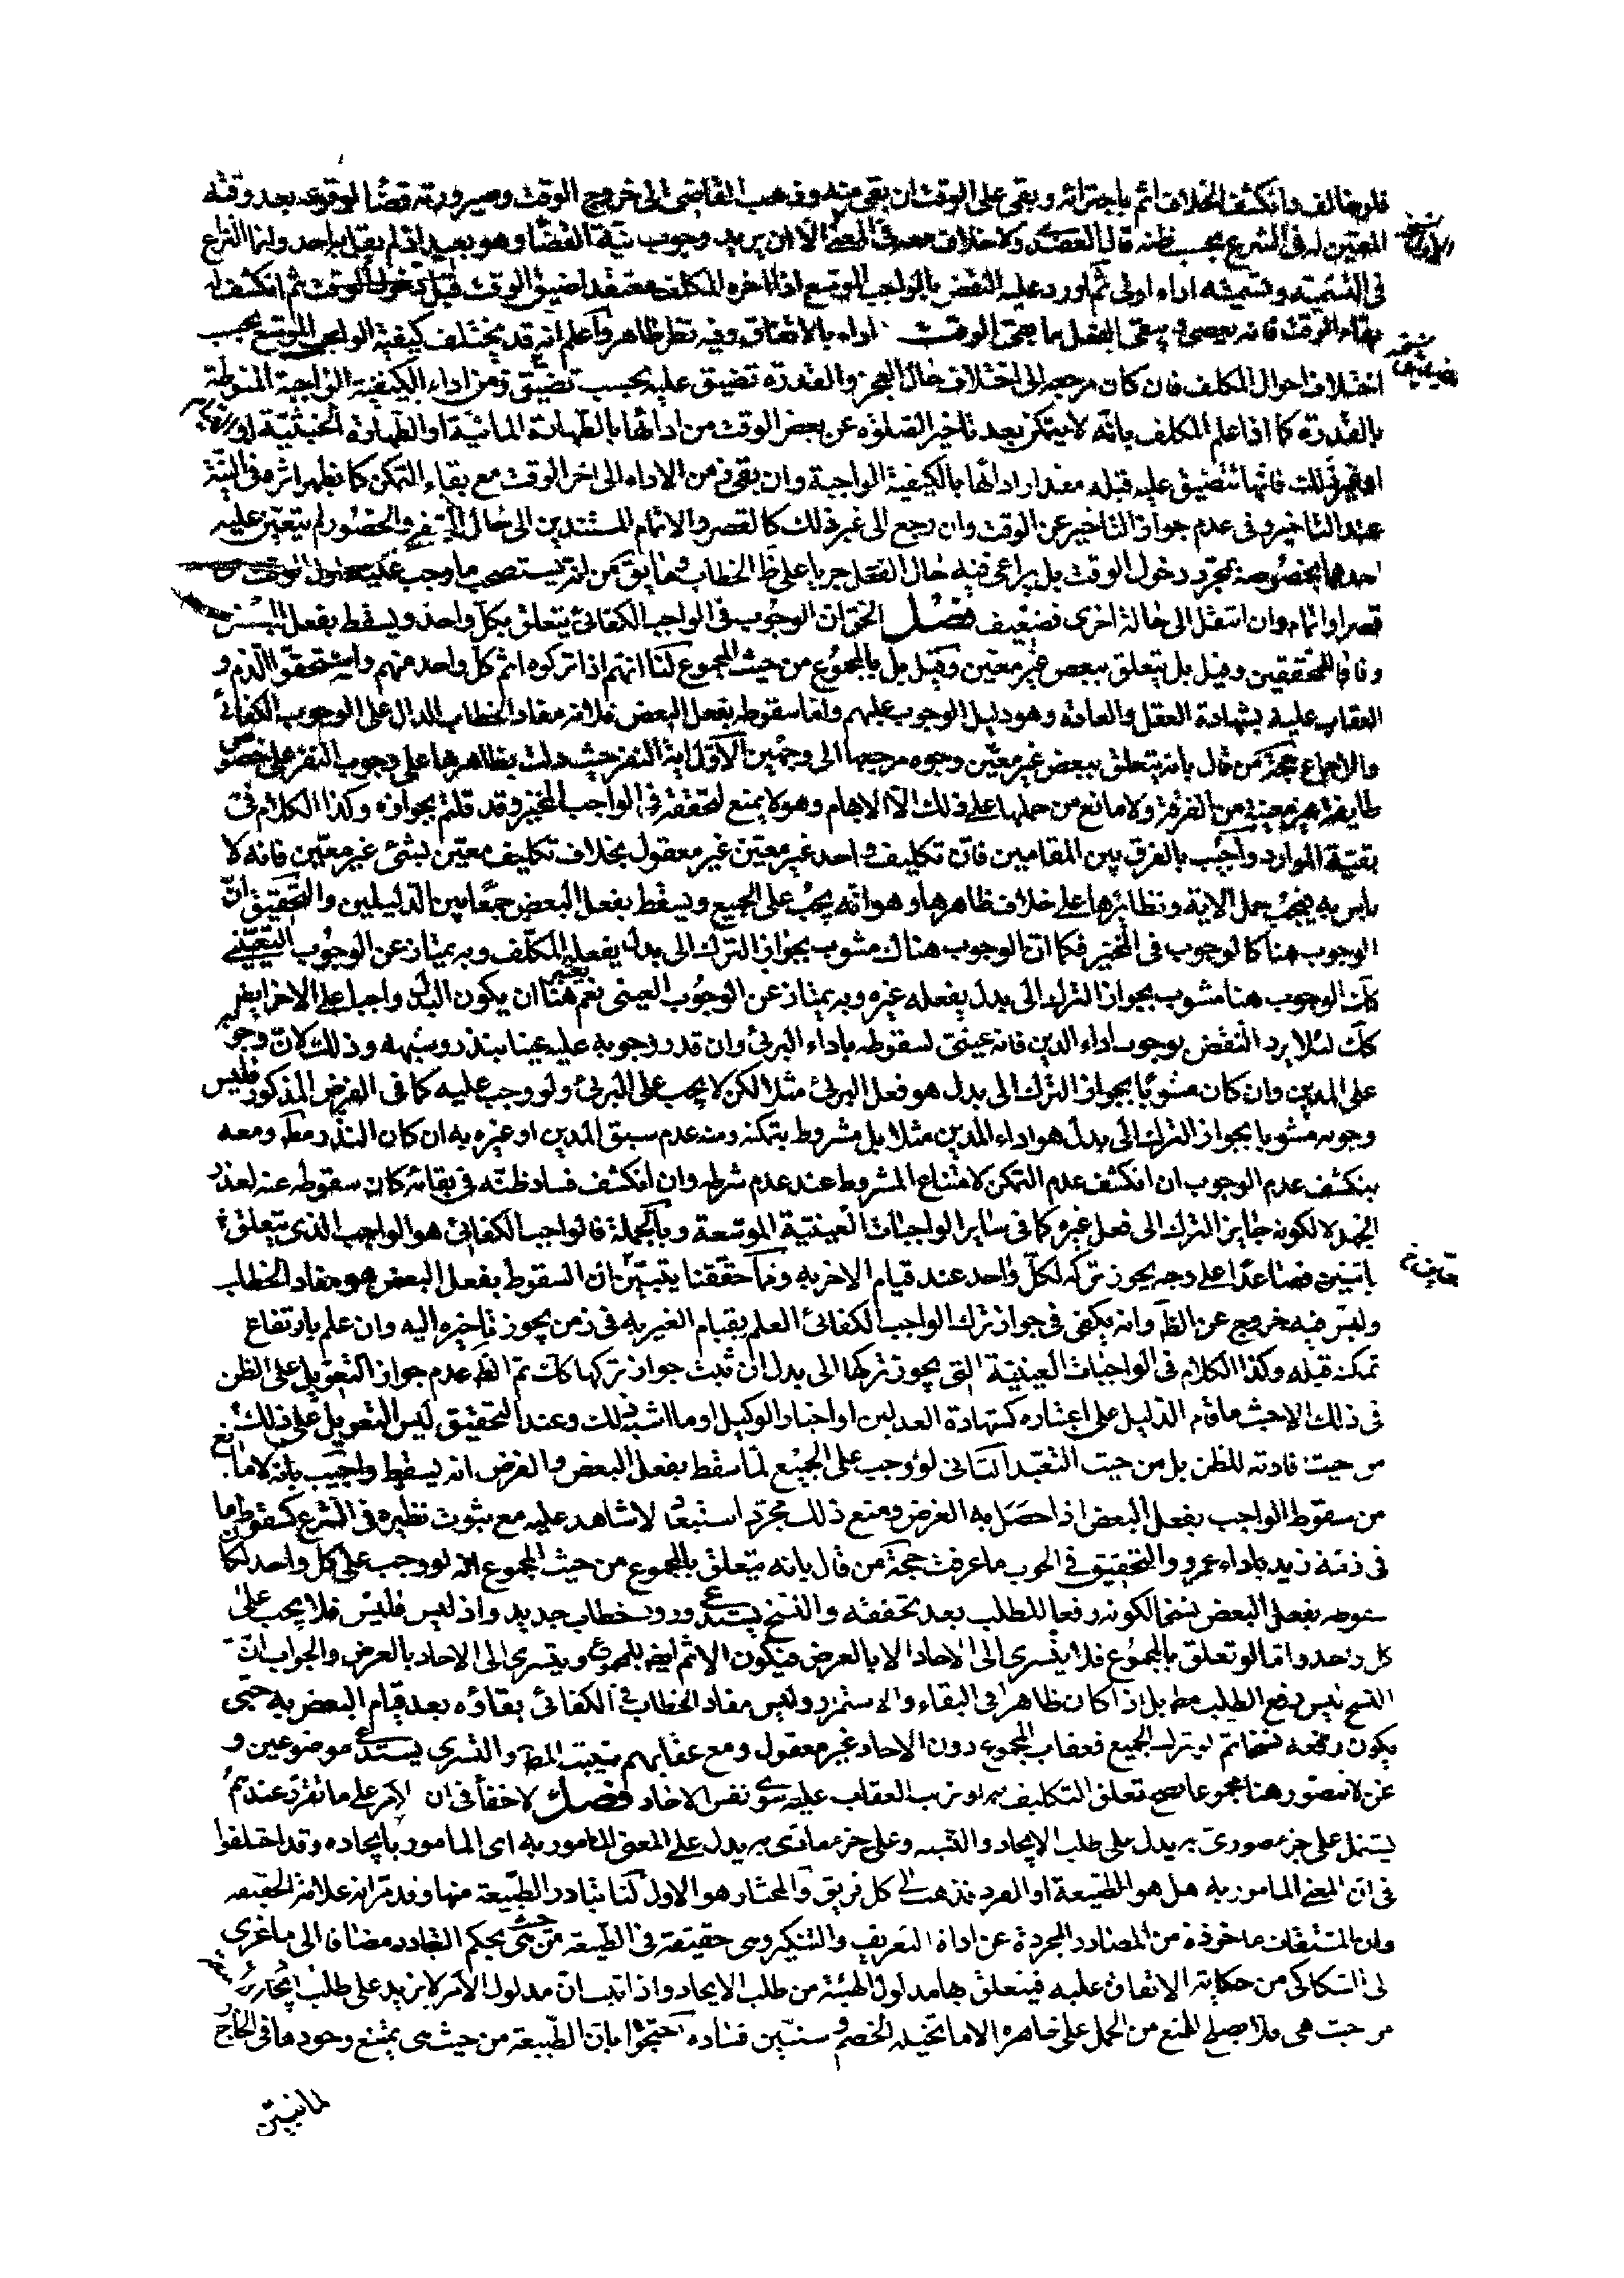 فلو خالف وانكشف الخلاف اثم باجترائه وبقى على الوقت ان بقى منه وذهب القاضى الى خروج الوقت وصيرورته قضاء لوقوعه بعد وقته
المعين له فى الشرع بحسب ظنه قال العضدى ولا خلاف معه فى المعنى الا ان يريد وجوب نية القضاء وهو بعيد اذ لم يقل به احد وانما النزاع
فى التسمية وتسميته اداء اولى ثم اورد عليه النقض بالواجب الموسع اذا اخره المكلف معتقدا ضيق الوقت قبل دخول الوقت ثم انكشف له
بقاء الوقت فانه يعصى ويبقى الفعل ما بقى الوقت اداء بالاتفاق وفيه نظر ظاهر واعلم انه قد يختلف كيفية الواجب الموسع بحسب
اختلاف احوال المكلف فان كان مرجعه الى اختلاف حال العجز والقدرة تضيق عليه بحسب تضيق زمن اداء الكيفية الواجبة المنوطة
بالقدرة كما اذا علم المكلف بانه لا يتمكن بعد تاخير الصلوة عن بعض الوقت من ادائها بالطهارة المائية او الطهارة الخبثية او
او غير ذلك فانها تتضيق عليه قبله مقدار ادائها بالكيفية الواجبة وان بقى زمن الاداء الى اخر الوقت مع بقاء التمكن كما يظهر اثره فى النية
عند التاخير وفى عدم جواز التاخير عن الوقت وان رجع الى غير ذلك كالقصر والاتمام المستندين الى حال السفر والحضور لم يتعين عليه
احدهما بخصوصه بمجرد دخول الوقت بل يراعى فيه حال الفعل جريا على ظ الخطاب فما يق من انه يستصحب ما وجب عليه اول الوقت من
قصر او اتمام وان انتقل الى حالة اخرى فضعيف فصل الحق ان الوجوب فى الواجب الكفائى يتعلق بكل واحد ويسقط بفعل البعض
وفاقا للمحققين وقيل بل يتعلق ببعض غير معين وقيل بل بالمجموع من حيث المجموع لنا انهم اذا تركوه اثم كل واحد منهم واستحقوا الذم و
العقاب عليه بشهادة العقل والعادة وهو دليل الوجوب عليهم واما سقوطه بفعل البعض فلانه مفاد الخطاب الدال على الوجوب الكفائى
والاجماع حجة من قال بانه يتعلق ببعض غير معين وجوه مرجعها الى وجهين الاول اية النفر حيث دلت بظاهرها على وجوب النفر على خصوص
طايفة غير معينة من الفرقة ولا مانع من حملها على ذلك الا الابهام وهو لا يمنع لتحققه فى الواجب المخير وقد قلتم بجوازه وكذا الكلام فى
بقية الموارد واجيب بالفرق بين المقامين فان تكليف واحد غير معين غير معقول بخلاف تكليف معين بشئ غير معين فانه لا
باس به فيجب حمل الاية ونظائرها على خلاف ظاهرها وهو انه يجب على الجميع ويسقط بفعل البعض جمعا بين الدليلين والتحقيق ان
الوجوب هنا كالوجوب فى المخير فكما ان الوجوب هناك مشوب بجواز الترك الى بدل يفعله المكلف وبه يمتاز عن الوجوب التعيينى
كك الوجوب هنا مشوب بجواز الترك الى بدل يفعله غيره وبه يمتاز عن الوجوب العينى نعم يعتبر هنا ان يكون البدل واجبا على الاخر ايضا
كك لئلا يرد النقض بوجوب اداء الدين فانه عينى لسقوطه باداء البرئ وان قدر وجوبه عليه عينا بنذر وشبهه وذلك لان وجوبه
على المدين وان كان مشوبا بجواز الترك الى بدل هو فعل البرئ مثلا لكن لا يجب على البرئ ولو وجب عليه كما فى الفرض المذكور فليس
وجوبه مشوبا بجواز الترك الى بدل هو اداء المدين مثلا بل مشروط بتمكنه ومنه عدم سبق المدين او غيره به ان كان النذر مط ومعه
ينكشف عدم الوجوب ان انكشف عدم التمكن لامتناع المشروط عند عدم شرطه وان انكشف فساد ظنه فى بقائه كان سقوطه عنه لعذر
الجهل لا لكونه جايز الترك الى فعل غيره كما فى ساير الواجبات العينية الموسعة وبالجملة فالواجب الكفائى هو الواجب الذى يتعلق
باثنين فصاعدا على وجه يجوز تركه لكل واحد عند قيام الاخر به ومما حققنا يتبين ان السقوط بفعل البعض هو مفاد الخطاب
وليس فيه خروج عن الظ وانه يكفى فى جواز ترك الواجب الكفائى العلم بقيام الغير به فى زمن يجوز تاخيره اليه وان علم بارتفاع
تمكنه قبله وكذا الكلام فى الواجبات العينية التى يجوز تركها الى بدل ان ثبت جواز تركها كك ثم الظ عدم جواز التعويل على الظن
فى ذلك الا حيث ما قام الدليل على اعتباره كشهادة العدلين او اخبار الوكيل او ما اشبه ذلك وعند التحقيق ليس التعويل على ذلك
من حيث افادته للظن بل من حيث التعبد الثانى لو وجب على الجميع لما سقط بفعل البعض والفرض انه يسقط واجيب بانه لا مانع
من سقوط الواجب بفعل البعض اذا حصل به الغرض ومنع ذلك مجرد استبعاد لا شاهد عليه مع ثبوت نظيره فى الشرع كسقوط ما
فى ذمة زيد باداء عمرو والتحقيق فى الجواب ما عرفت حجة من قال بانه يتعلق بالمجموع من حيث المجموع انه لو وجب على كل واحد لكان
سقوطه بفعل البعض نسخا لكونه رفعا للطلب بعد تحققه والنسخ يستدعى ورود خطاب جديد واذ ليس فليس فلا يجب على
كل واحد واما لو تعلق بالمجموع فلا يتسرى الى الاحاد الا بالعرض فيكون الاثم ايضا للمجموع ويتسرى الى الاحاد بالعرض والجواب ان
النسخ ليس رفع الطلب مط بل اذا كان ظاهرا فى البقاء والاستمرار وليس مفاد الخطاب فى الكفائى بقاؤه بعد قيام البعض به حتى
يكون رفعه نسخا ثم لو ترك الجميع فعقاب المجموع دون الاحاد غير معقول ومع عقابهم يثبت المط والتسرى يستدعى موضوعين و
نحن لا نتصور هنا مجموعا يصح تعلق التكليف به او ترتب العقاب عليه سوى نفس الاحاد فصل لا خفاء فى ان الامر على ما تقرر عندهم
يشتمل على جزء صورى به يدل على طلب الايجاد والنسبة وعلى جزء مادى به يدل على المعنى المامور به اى المامور بايجاده وقد اختلفوا
فى ان المعنى المامور به هل هو الطبيعة او الفرد فذهب الى كل فريق والمختار هو الاول لنا تبادر الطبيعة منها وقد مر انه علامة الحقيقة
وان المشتقات ماخوذة من المصادر المجردة عن اداة التعريف والتنكير وهى حقيقة فى الطبيعة من حيث هى بحكم التبادر مضافا الى ما عزى
الى السكاكى من حكاية الاتفاق عليه فيتعلق بها مدلول الهيئة من طلب الايجاد واذا ثبت ان مدلول الامر لا يزيد على طلب ايجاد
من حيث هى فلا يصلح للمنع من الحمل على ظاهره الا ما تخيله الخصم وسنبين فساده احتجوا بان الطبيعة من حيث هى يمتنع وجودها فى الخارج